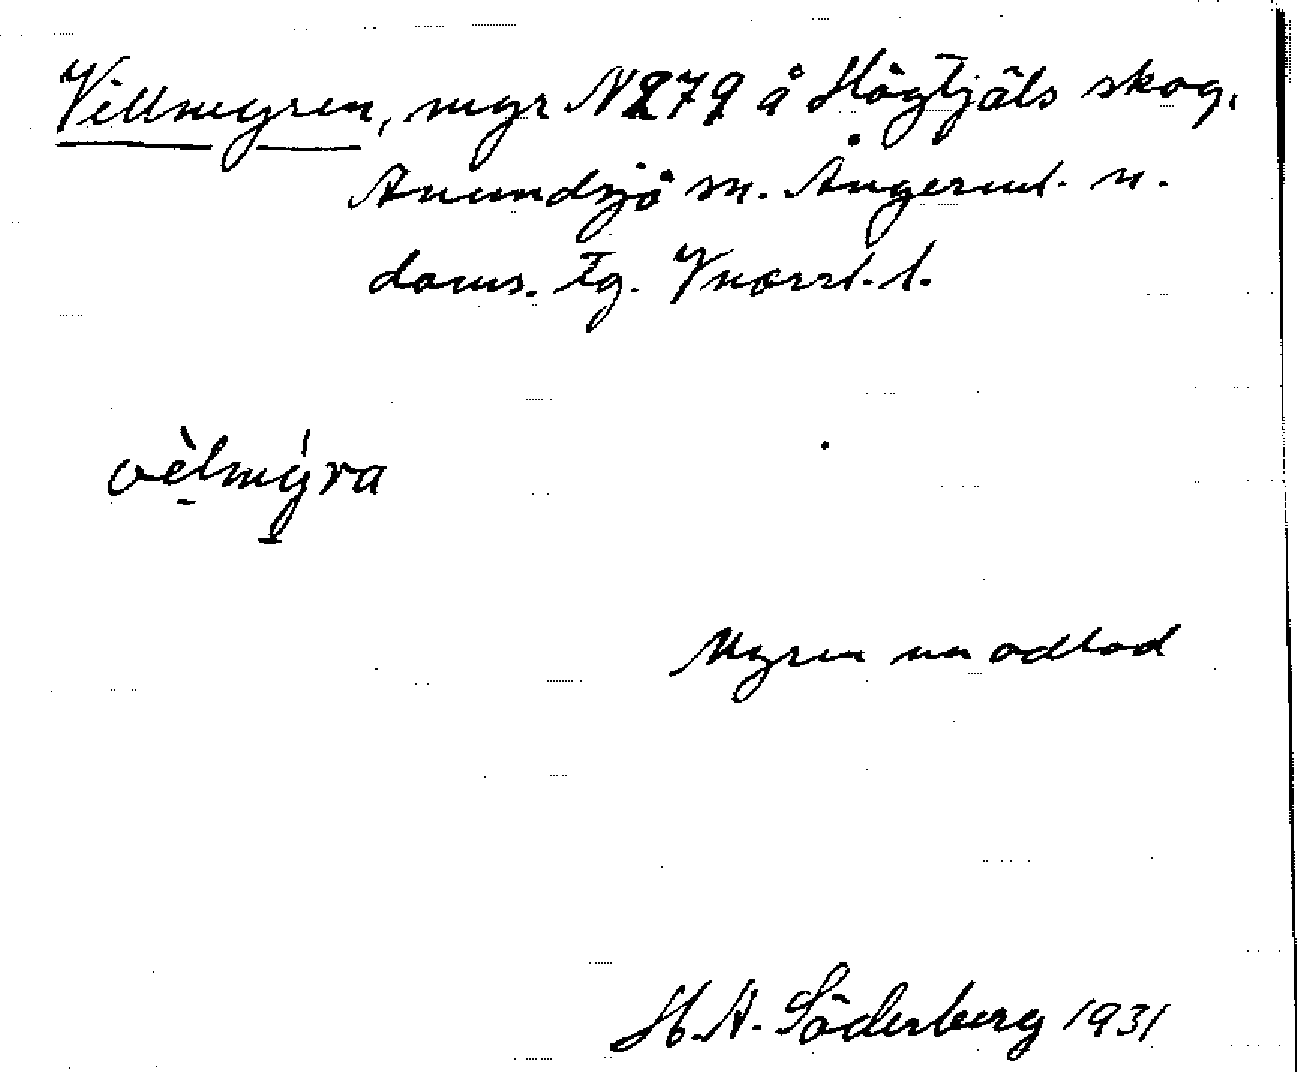 Villmyren, myr N279 å Högtjäls skog,
Anundsjö sn. Ångerml. n.
doms. tg. Vnorrl. l.
vèlmýra
Myren nu odlad
H. A. Söderberg 1931